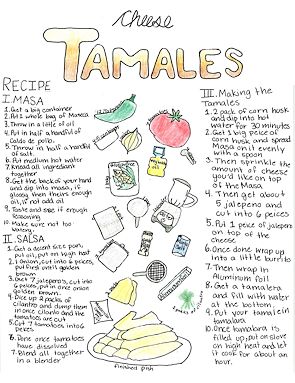 Cheese
TAMALES
RECIPE
I. MASA
1. Get a big container
2. Put 1 whole bag of Maseca
3. Throw in a little of oil
4. Put in half a handful of
Caldo de pollo.
5. Throw in half a handful
of salt
6. Put medium hot water
7. Knead all ingredient
together
8. Get the back of your hand
and dip into masa, if
glossy then theirs enough
oil, if not add oil
9. Taste and see if enough
seasoning
10. Make sure not too
watery
II. SALSA
1. Get a decent size pan,
put oil, put on high heat
2. 1 onion, cut into 6 peices,
put first until golden
brown
3. Get 7 jalapeños, cut into
6 peices, put in once onion
golden brown.
4. Dice up 2 packs of
Cilantro and dump them
in once cilantro and the
tomatoes are cut
5. Cut 7 tomatoes into 6
peices
6. Done once tomatoes
have dissolved
7. Blend all together
in a blender
III. Making the
Tamales
1. 2 pack of corn husk
and dip into hot
water for 30 minutes
2. Get 1 big peice of
corn husk and spread
Masa on it evenly
with a spoon
3. Then sprinkle the
amount of cheese
you'd like on top
of the Masa
4. Then get about
5 jalapeno and
cut into 6 peices
5. Put 1 peice of jalapeno
on top of the
cheese
6. Once done wrap up
into a little burrito
7. Then wrap in
Aluminum foil
8. Get a tamalera
and fill with water
at the bottom,
9. Put your tamale in
tamalara
10. Once tamalara is
filled up, put on stove
on high heat and let
it cook for about an
hour.
finished dish